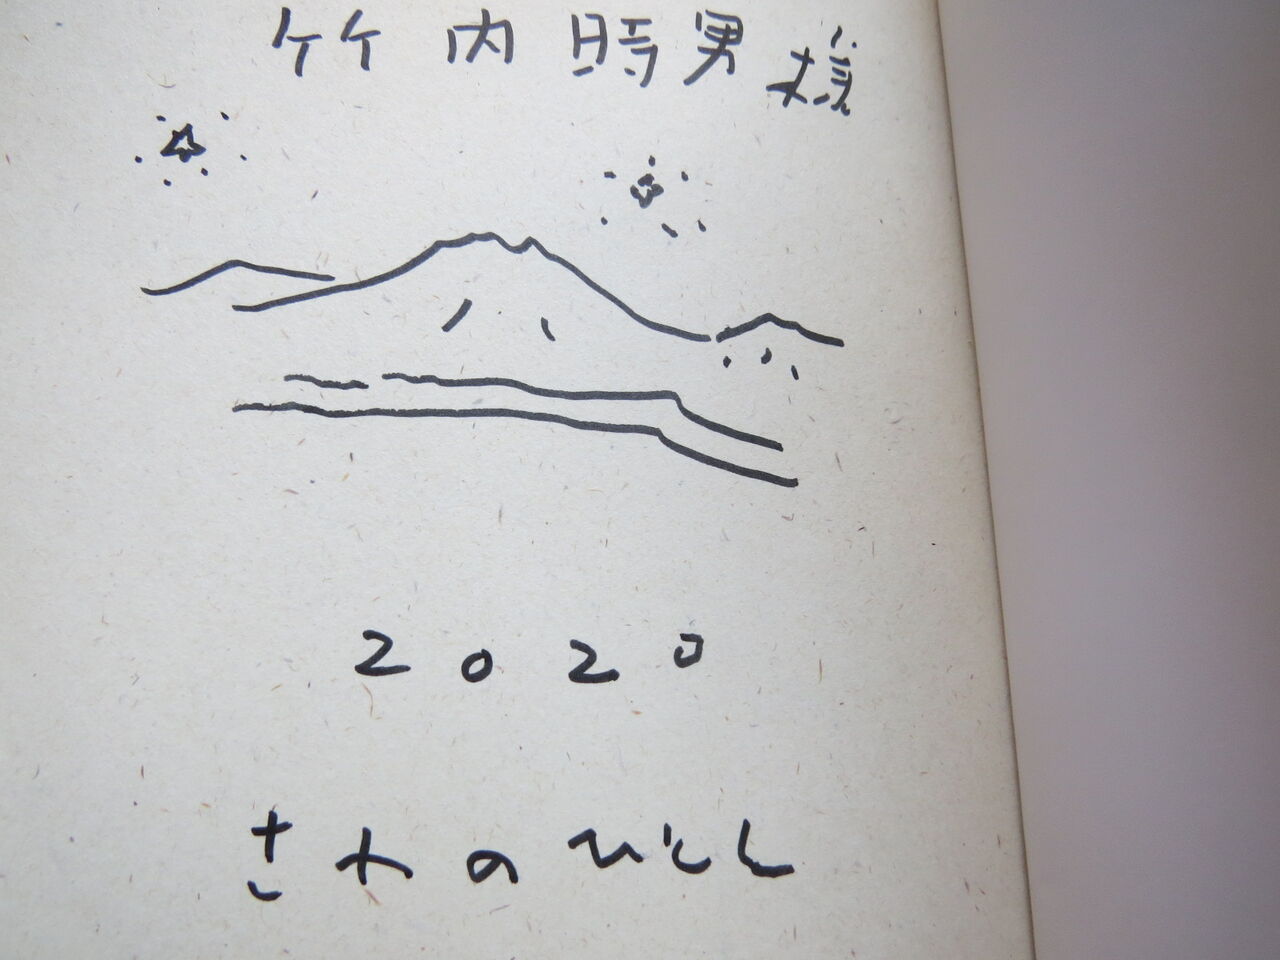 竹内時男様
2020
さわのひとし